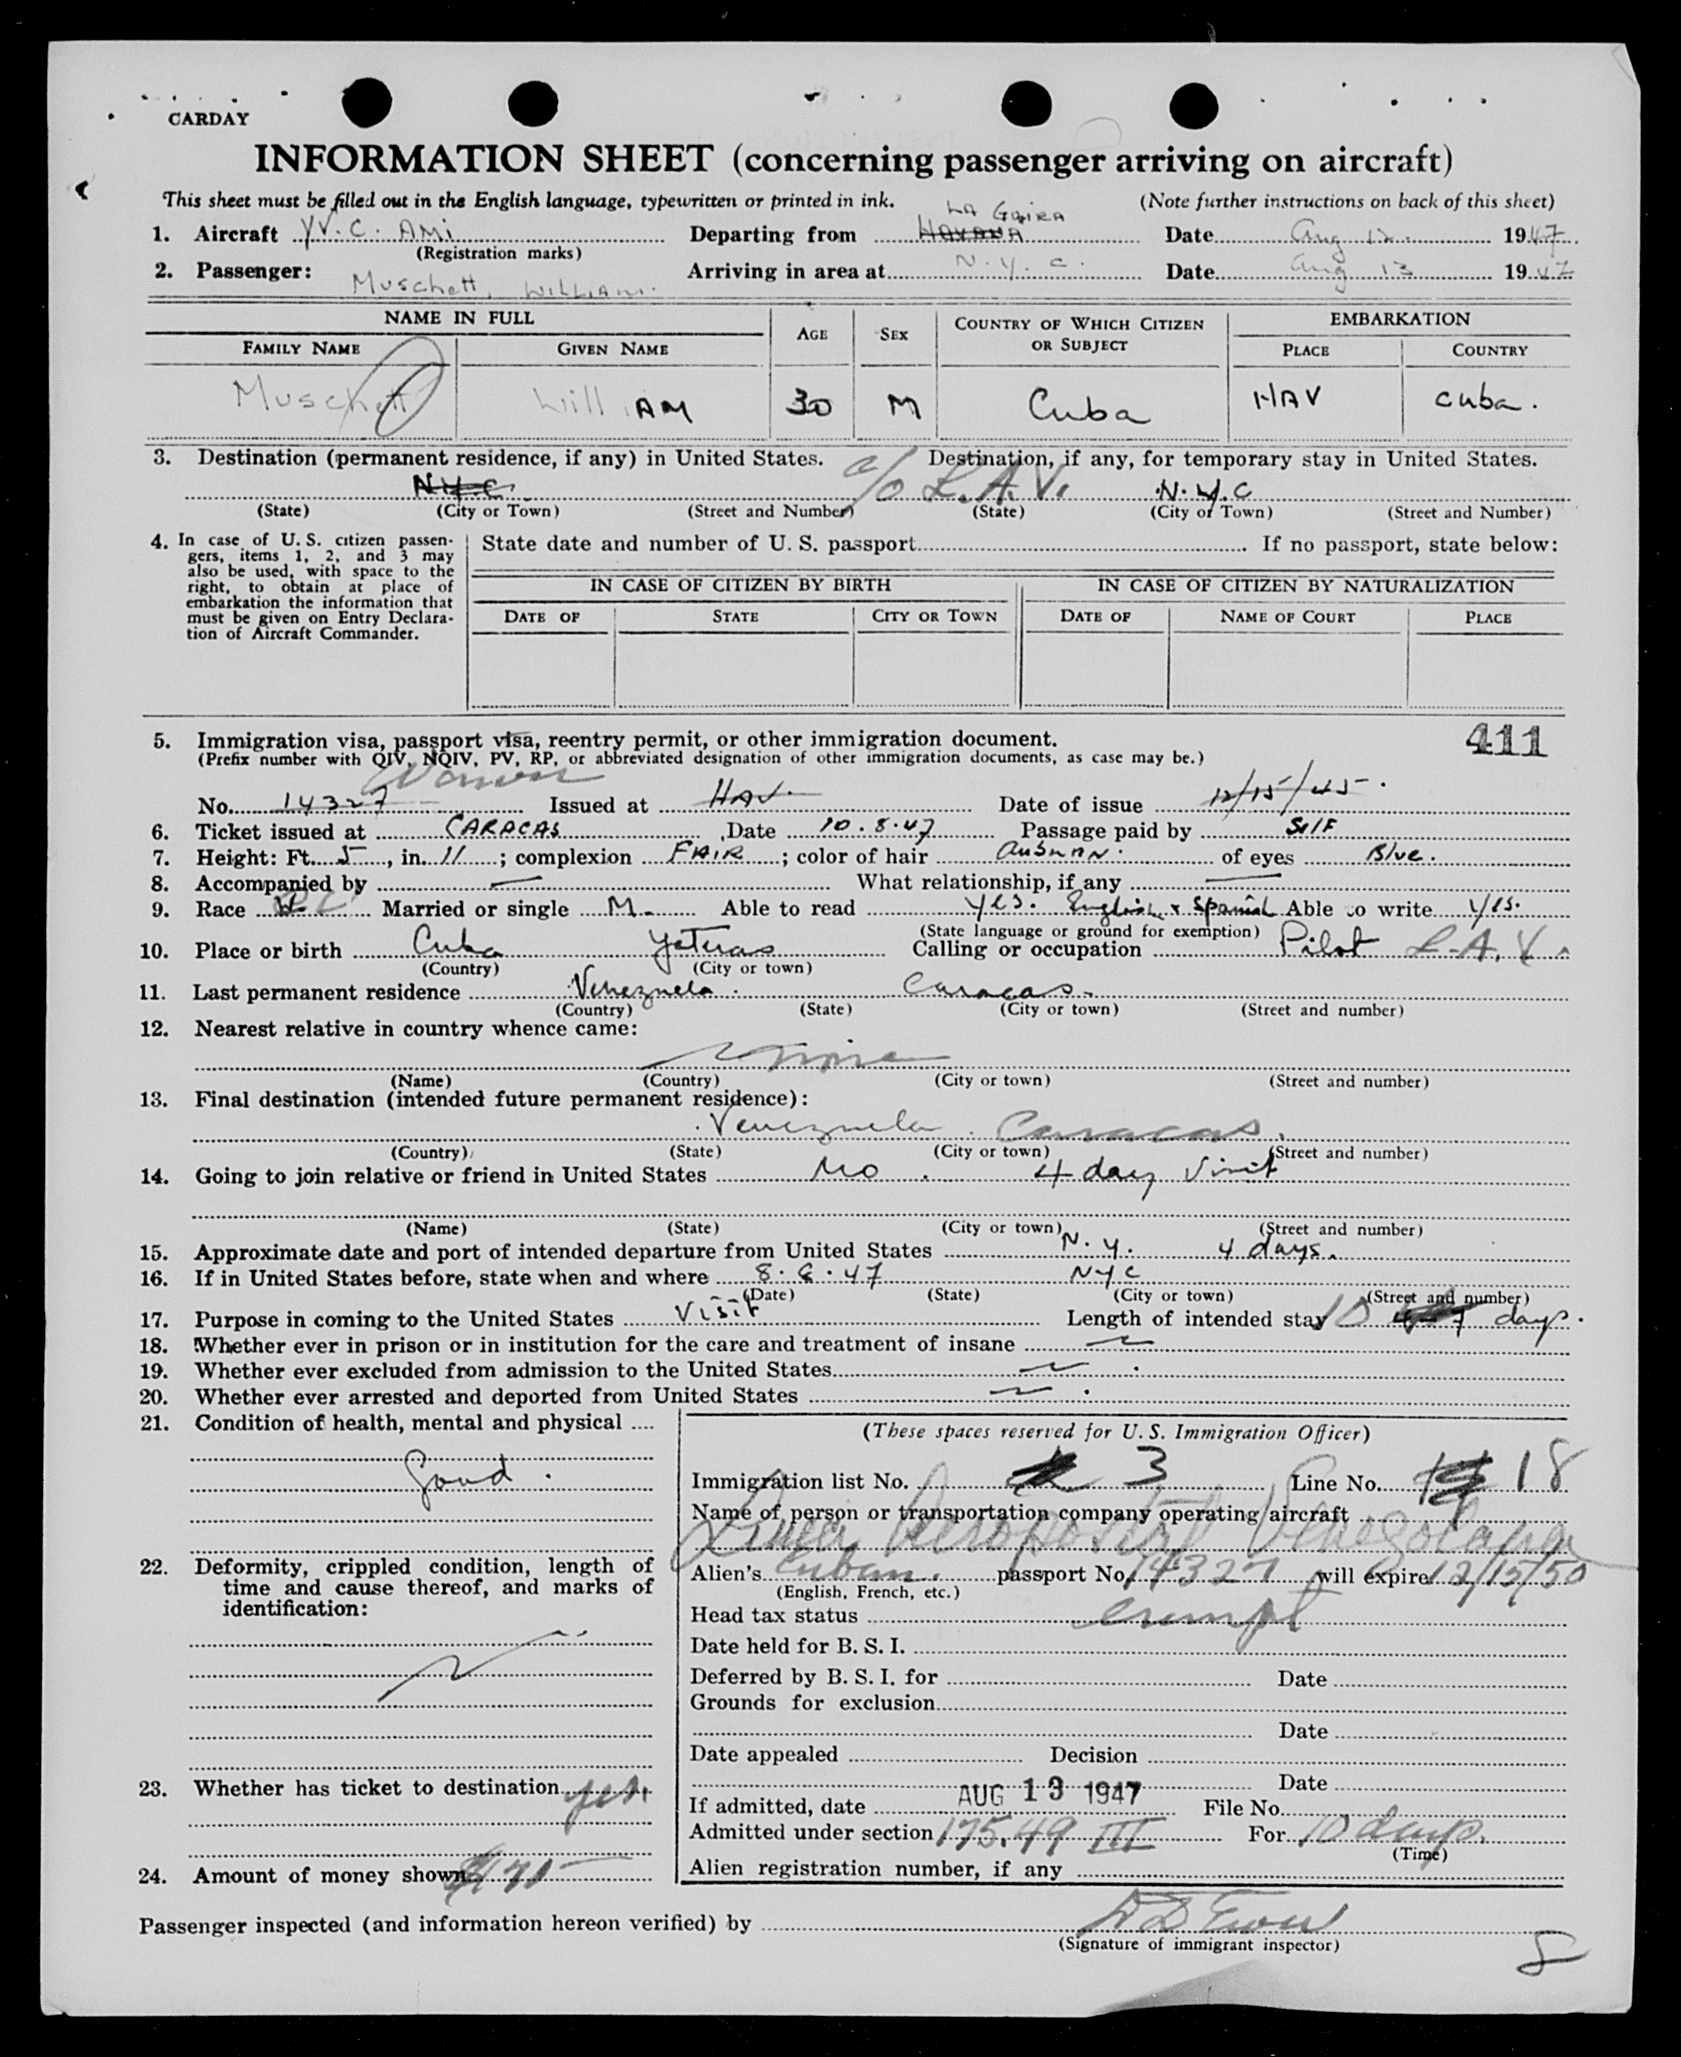 CARDAY
INFORMATION SHEET (concerning passenger arriving on aircraft)
This sheet must be filled out in the English language, typewritten or printed in ink. (Note further instructions on back of this sheet)
LA GAIRA
1. Aircraft YV. C. AMi Departing from HAVANA Date Aug 12. 1947
(Registration marks)
2. Passenger: Muschett, WILLIAM. Arriving in area at N. Y. C. Date Aug 13 1947
NAME IN FULL AGE SEX COUNTRY OF WHICH CITIZEN OR SUBJECT EMBARKATION
FAMILY NAME GIVEN NAME PLACE COUNTRY
Muschett WilliAM 30 M Cuba HAV Cuba.
3. Destination (permanent residence, if any) in United States. Destination, if any, for temporary stay in United States.
N.Y.C. c/o L.A.V. N.Y.C
(State) (City or Town) (Street and Number) (State) (City or Town) (Street and Number)
4. In case of U. S. citizen passengers, items 1, 2, and 3 may also be used, with space to the right, to obtain at place of embarkation the information that must be given on Entry Declaration of Aircraft Commander.
State date and number of U. S. passport If no passport, state below:
IN CASE OF CITIZEN BY BIRTH IN CASE OF CITIZEN BY NATURALIZATION
DATE OF STATE CITY OR TOWN DATE OF NAME OF COURT PLACE
411
5. Immigration visa, passport visa, reentry permit, or other immigration document.
(Prefix number with QIV, NQIV, PV, RP, or abbreviated designation of other immigration documents, as case may be.)
No. 14327 Issued at HAV. Date of issue 12/15/45.
6. Ticket issued at CARACAS Date 10.8.47 Passage paid by SElF
7. Height: Ft. 5, in. 11; complexion FAIR; color of hair AuburN. of eyes Blue.
8. Accompanied by — What relationship, if any —
9. Race Married or single M. Able to read yes. English & Spanish Able to write yes.
(State language or ground for exemption)
10. Place or birth Cuba Yateras Calling or occupation Pilot L.A.V.
(Country) (City or town)
11. Last permanent residence Venezuela. Caracas.
(Country) (State) (City or town) (Street and number)
12. Nearest relative in country whence came:
none
(Name) (Country) (City or town) (Street and number)
13. Final destination (intended future permanent residence):
Venezuela. Caracas.
(Country) (State) (City or town) (Street and number)
14. Going to join relative or friend in United States No. 4 day visit
(Name) (State) (City or town) (Street and number)
15. Approximate date and port of intended departure from United States N. Y. 4 days.
16. If in United States before, state when and where 8.6.47 NYC
(Date) (State) (City or town) (Street and number)
17. Purpose in coming to the United States Visit Length of intended stay 10 days.
18. Whether ever in prison or in institution for the care and treatment of insane
19. Whether ever excluded from admission to the United States
20. Whether ever arrested and deported from United States
21. Condition of health, mental and physical
Good.
22. Deformity, crippled condition, length of time and cause thereof, and marks of identification:
23. Whether has ticket to destination yes.
24. Amount of money shown
(These spaces reserved for U. S. Immigration Officer)
Immigration list No. 3 Line No. 18
Name of person or transportation company operating aircraft
Linea Aeropostal Venezolana
Alien's Cuban. passport No. 14327 will expire 12/15/50
(English, French, etc.)
Head tax status exempt
Date held for B. S. I.
Deferred by B. S. I. for Date
Grounds for exclusion
Date
Date appealed Decision
Date
If admitted, date AUG 13 1947 File No.
Admitted under section 175.49 III For 10 days.
(Time)
Alien registration number, if any
Passenger inspected (and information hereon verified) by
(Signature of immigrant inspector)
8